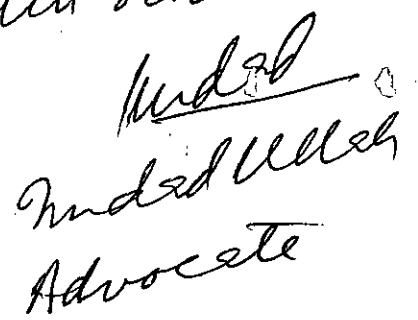 Imdad
Imdad Ullah
Advocate